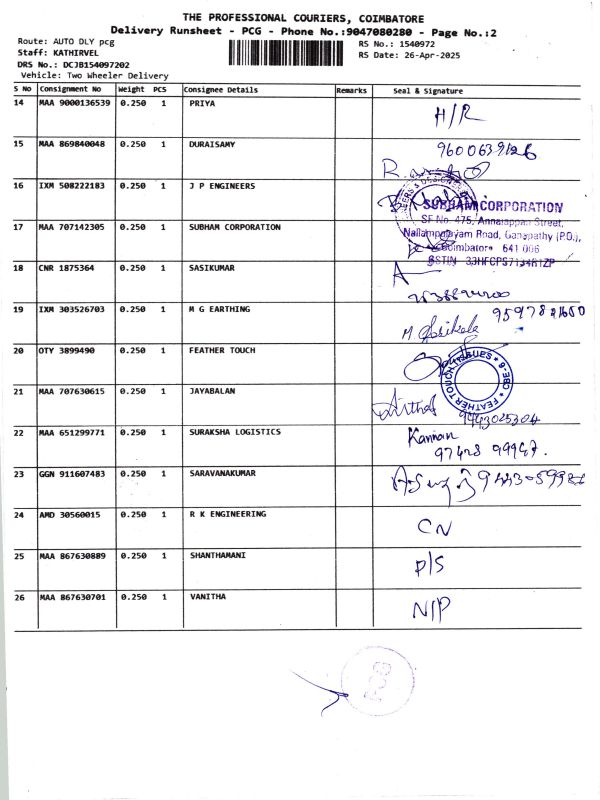 THE PROFESSIONAL COURIERS, COIMBATORE
Delivery Runsheet - PCG - Phone No.:9047080280 - Page No.:2
Route: AUTO DLY pcg RS No.: 1540972
Staff: KATHIRVEL RS Date: 26-Apr-2025
DRS No.: DCJB154097202
Vehicle: Two Wheeler Delivery
S No Consignment No Weight PCS Consignee Details Remarks Seal & Signature
14 MAA 9000136539 0.250 1 PRIYA H/R
15 MAA 869840048 0.250 1 DURAISAMY 9600639126
16 IXM 508222183 0.250 1 J P ENGINEERS
SUBHAM CORPORATION
SF No. 475, Annaiappan Street,
17 MAA 707142305 0.250 1 SUBHAM CORPORATION
Nallampalayam Road, Ganapathy (P.O.),
Coimbatore 641 006
GSTIN 33HFCPS7134R1ZP
18 CNR 1875364 0.250 1 SASIKUMAR
19 IXM 303526703 0.250 1 M G EARTHING 9597821650
20 OTY 3899490 0.250 1 FEATHER TOUCH
FEATHER TOUCH TISSUES CBE-6
21 MAA 707630615 0.250 1 JAYABALAN
9943025304
22 MAA 651299771 0.250 1 SURAKSHA LOGISTICS Kannan
97428 99947.
23 GGN 911607483 0.250 1 SARAVANAKUMAR
24 AMD 30560015 0.250 1 R K ENGINEERING CN
25 MAA 867630889 0.250 1 SHANTHAMANI P/S
26 MAA 867630701 0.250 1 VANITHA N/P